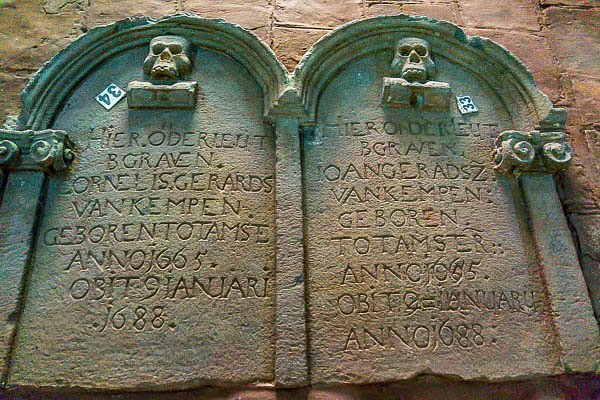 34
HIER.ODERLEUT
BGRAVEN.
CORNELIS.GERARDS
VAN KEMPEN:
GEBOREN TOT AMSTE
ANNO 1665.
OBIT 9 IANUARI
.1688.
33
HIER ONDERLEUT
BGRAVEN.
IOAN GERADSZ
VAN KEMPEN:
GEBOREN.
TOT AMSTER::
ANNO 1665:
OBIT 9=IANUARIJ
ANNO 1688: